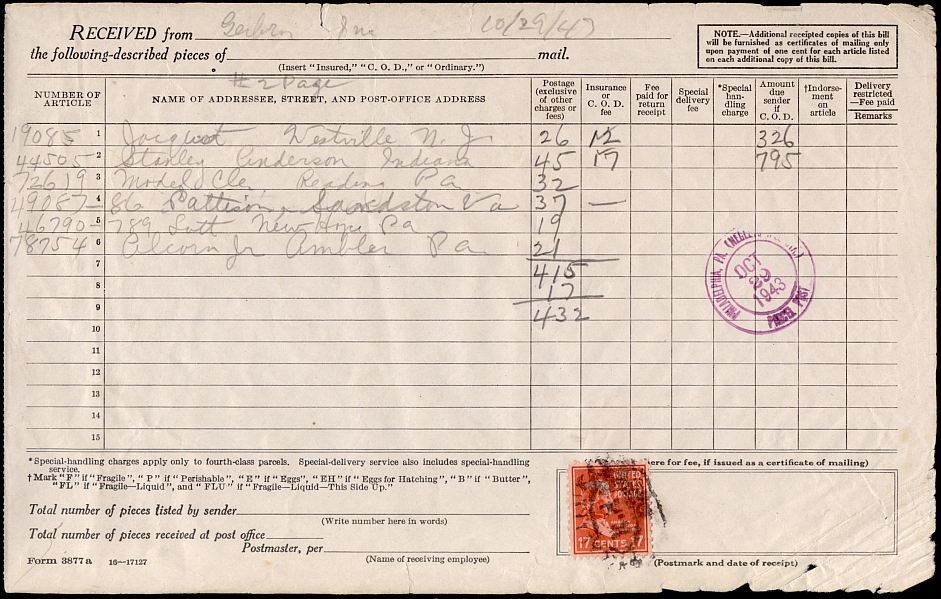 RECEIVED from 10/29/47
the following-described pieces of mail.
(Insert "Insured," "C. O. D.," or "Ordinary.")
NOTE.—Additional receipted copies of this bill
will be furnished as certificates of mailing only
upon payment of one cent for each article listed
on each additional copy of this bill.
# 2 Page
NUMBER OF ARTICLE NAME OF ADDRESSEE, STREET, AND POST-OFFICE ADDRESS Postage (exclusive of other charges or fees) Insurance or C. O. D. fee Fee paid for return receipt Special delivery fee *Special handling charge Amount due sender if C. O. D. †Indorsement on article Delivery restricted—Fee paid
Remarks
19085 1 Westville N. J. 26 12 326
44505 2 Stanley Anderson Indiana 45 17 795
72619 3 Model Cle Reading Pa 32
49087 4 Pattison, Sandston Va 37 —
46790 5 789 Lott New Hope Pa 19
78754 6 Alcorn Jr Ambler Pa 21
7 415
8 17
9 432
10
11
12
13
14
15
PHILADELPHIA, PA.
OCT 29 1943
PARCEL POST
*Special-handling charges apply only to fourth-class parcels. Special-delivery service also includes special-handling
service.
†Mark "F" if "Fragile", "P" if "Perishable", "E" if "Eggs", "EH" if "Eggs for Hatching", "B" if "Butter",
"FL" if "Fragile—Liquid", and "FLU" if "Fragile—Liquid—This Side Up."
here for fee, if issued as a certificate of mailing)
UNITED
STATES
POSTAGE
17 CENTS 17
Total number of pieces listed by sender
(Write number here in words)
Total number of pieces received at post office
Postmaster, per
(Name of receiving employee)
(Postmark and date of receipt)
Form 3877 a 16—17127